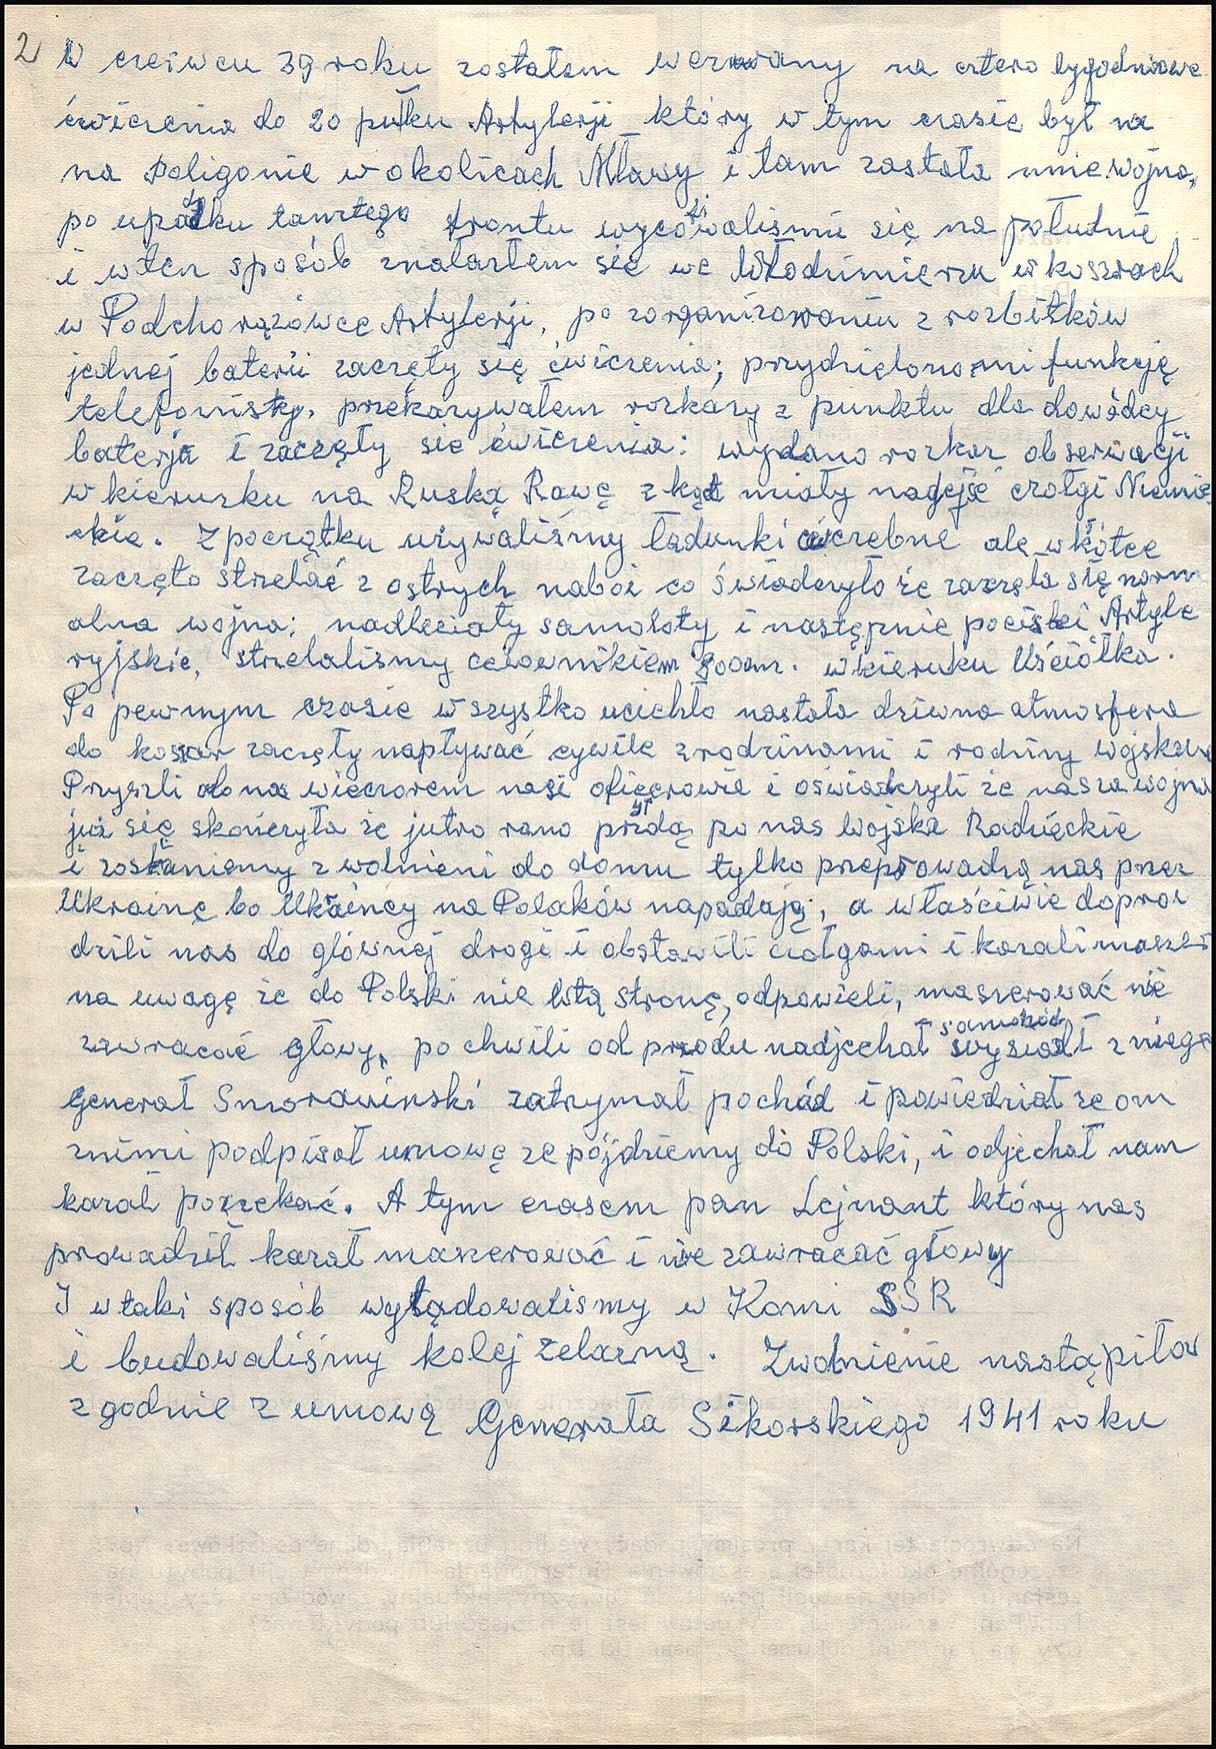 2 W czeiwcu 39 roku zostałem wezwany na cztero tygodniowe
ćwiczenia do 20 pułku Artylerji który w tym czasie był na
na Poligonie w okolicach Mławy i tam zastała mnie wojna,
po upadku tamtego frontu wycowaliśmi się na południe
i w ten sposób znalazłem się we Włodzimierzu w koszrach
w Podchorążówce Artylerji, po zorganizowaniu z rozbitków
jednej baterii zaczęły się ćwiczenia; przydzielono mi funkcję
telefonisty, przekazywałem rozkazy z punktu dla dowódcy
baterje i zaczęły się ćwiczenia: wydano rozkaz obserwacji
w kierunku na Ruską Rawę z kąt miały nadejść czołgi Niemie
ckie. Z początku używaliśmy ładunki ćwiczebne ale wkótce
zaczęto strzelać z ostrych naboi co świadczyło że zaczęła się norm
alna wojna; nadleciały samoloty i następnie pociski Artyle
ryjskie, strzelalismy celownikiem 800m. w kieruku Uściółka.
Po pewnym czasie wszystko ucichło nastała dziwna atmosfera
do koszar zaczęły napływać cywile z rodzinami i rodziny wojskow
Przyszli do nas wieczorem nasi oficerowie i oświadczyli że nasza wojna
już się skończyła że jutro rano przydą po nas Wojska Radzieckie
i zostaniemy zwolnieni do domu tylko przeprowadzą nas przez
Ukrainę bo Ukraincy na Polaków napadają, a właściwie doprow
dzili nas do głównej drogi i obstawili czołgami i kazali maszer
na uwagę że do Polski nie w tą stronę, odpowieli, maszerować nie
zawracać głowy, po chwili od przodu nadjechał samohód wysiadł z niego
Generał Smorawinski zatrzymał pochód i powiedział że on
znimi podpisał umowę że pójdziemy do Polski, i odjechał nam
kazał poczekać. A tym czasem pan Lejnant który nas
prowadził kazał maszerować i nie zawracać głowy
I w taki sposób wylądowalismy w Komi SSR
i budowaliśmy kolej żelazną. Zwolnienie nastąpiło
zgodnie z umową Generała Sikorskiego 1941 roku